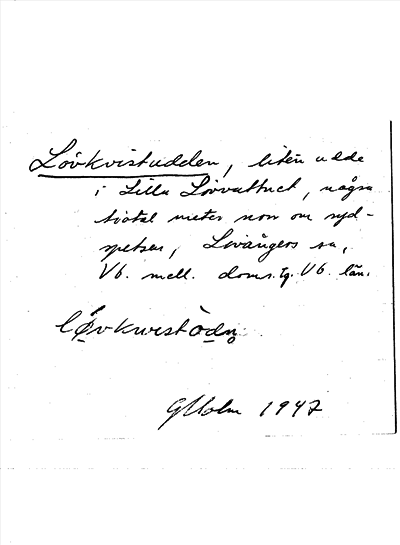 Lövkvistudden, liten udde
i Lilla Lövvattnet, några
tiotal meter norr om syd-
spetsen, Lövångers sn,
Vb. mell. doms.tg. Vb. län.
lövkwistòdn̥
GHolm 1947